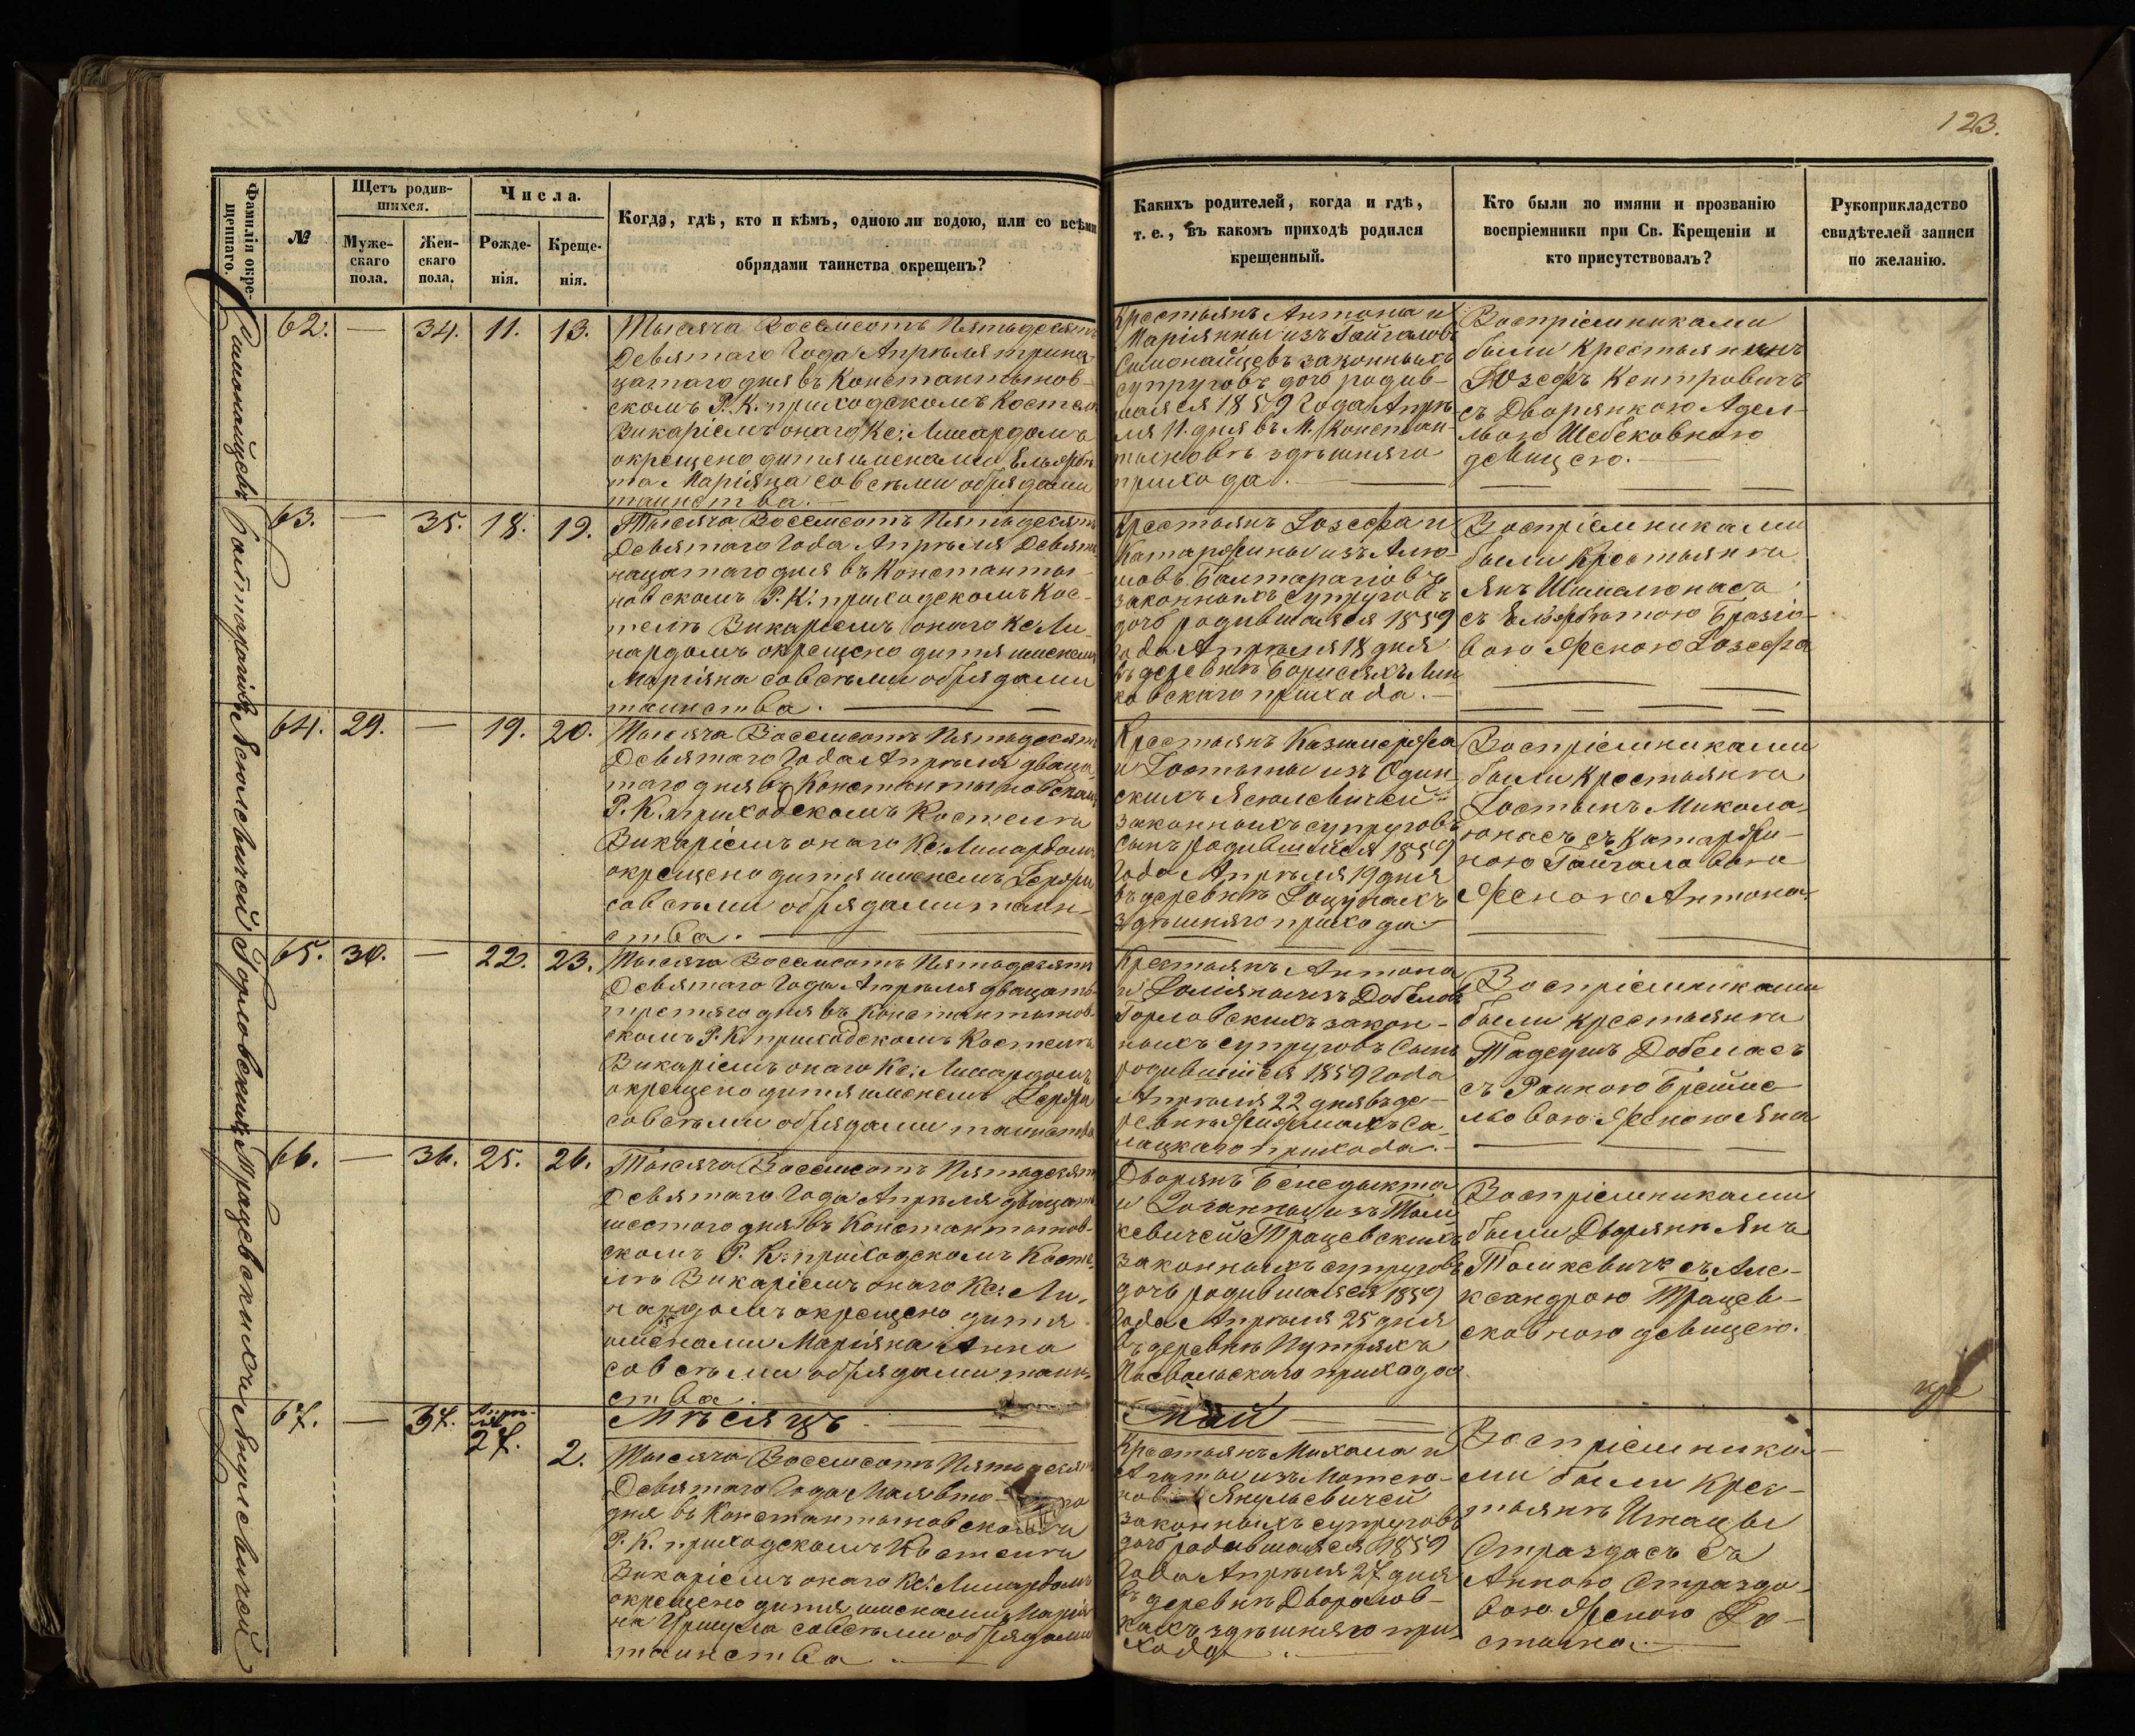 123.
Фамилія окре-
щеннаго.
№
Щетъ родив-
шихся.
Муже-
скаго
пола.
Жен-
скаго
пола.
Числа.
Рожде-
нія.
Креще-
нія.
Когда, гдѣ, кто и кѣмъ, одною ли водою, или со всѣми
обрядами таинства окрещенъ?
Какихъ родителей, когда и гдѣ,
т. е., въ какомъ приходѣ родился
крещенный.
Кто были по имяни и прозванію
воспріемники при Св. Крещеніи и
кто присутствовалъ?
Рукоприкладство
свидѣтелей записи
по желанію.
62. — 34. 11. 13.
Тысяча Восемсотъ Пятьдесятъ
Девятаго Года Апрѣля трина-
цатаго дня въ Константынов-
скомъ Р. К. приходскомъ Костелѣ
Викаріемъ онаго Кс: Линардомъ
окрещено дитя именами Ельжбѣ-
та Маріяна со всѣми обрядами
таинства. —
Крестьянъ Антона и
Маріянны изъ Гайгаловъ
Симонайцевъ законныхъ
супруговъ дочь родив-
шаяся 1859 Года Апрѣ-
ля 11. дня въ М. Констан-
тыновѣ здѣшняго
прихода. —
Воспріемниками
были Крестьянинъ
Юзефъ Кентровичъ
съ Дворянкою Адел-
ьою Шебековною
девицею. —
Балтарагіовъ
63. — 35. 18. 19.
Тысяча Восемсотъ Пятьдесятъ
Девятаго Года Апрѣля Девят-
нацатаго дня въ Константы-
новскомъ Р. К: приходскомъ Кос-
телѣ Викаріемъ онаго Кс: Ли-
нардомъ окрещено дитя именемъ
Маріяна со всѣми обрядами
таинства. —
Крестьянъ Іозефа и
Катаржины изъ Алю-
шовъ Балтарагіовъ
законныхъ Супруговъ
дочь родившаяся 1859
Года Апрѣля 18 дня
въ деревнѣ Борисяхъ Лин-
ковскаго прихода. —
Воспріемниками
были Крестьяне
Янъ Шималюнасъ
съ Ельжбѣтою Бразіо-
вою Женою Іозефа
Ясюлевичей
64. 29. — 19. 20.
Тысяча Восемсотъ Пятьдесятъ
Девятаго Года Апрѣля дваца-
таго дня въ Константыновскомъ
Р. К. приходскомъ Костелѣ
Викаріемъ онаго Кс: Линардомъ
окрещено дитя именемъ Іержи
со всѣми обрядами таин-
ства. —
Крестьянъ Казимержа
и Іостыны изъ Один-
скихъ Ясюлевичей
законныхъ супруговъ
Сынъ родившійся 1859
Года Апрѣля 19 дня
въ деревнѣ Лоцунахъ
здѣшняго прихода. —
Воспріемниками
были Крестьяне
Іостынъ Микола-
юнасъ съ Катаржи-
ною Гайгаловою
Женою Антона.
Горловскихъ
65. 30. — 22. 23.
Тысяча Восемсотъ Пятьдесятъ
Девятаго Года Апрѣля двацать
третяго дня въ Константынов-
скомъ Р. К. приходскомъ Костелѣ
Викаріемъ онаго Кс: Линардомъ
окрещено дитя именемъ Іержи
со всѣми обрядами таинства
Крестьянъ Антона
и Юліяны изъ Добеловъ
Горловскихъ закон-
ныхъ супруговъ Сынъ
родившійся 1859 Года
Апрѣля 22 дня въ де-
ревнѣ
лацкаго прихода. —
Воспріемниками
были Крестьяне
Тадеушъ Добеласъ
съ
вою Женою Яна
Трацевскихъ
66. — 36. 25. 26.
Тысяча Восемсотъ Пятьдесятъ
Девятаго Года Апрѣля двацать
шестого дня въ Константынов-
скомъ Р. К: приходскомъ Косте-
лѣ Викаріемъ онаго Кс: Ли-
нардомъ окрещено дитя
именами Маріяна Анна
со всѣми обрядами таин-
ства.
Дворянъ Бенедыкта
и Іоганны изъ Толи
кевичей Трацевскихъ
законныхъ супруговъ
дочь родившаяся 1859
Года Апрѣля 25 дня
въ деревнѣ Путряхъ
Посвольскаго прихода
Воспріемниками
были Дворяне Янъ
Толикевичъ съ Але-
ксандрою Трацев-
сковною девицею.
Мѣсяцъ Май
Янулевичей
67. — 37. Апрѣ-
ля
27. 2.
Тысяча Восемсотъ Пятьдесятъ
Девятаго Года Мая вто-
дня въ Константыновскомъ
Р. К. приходскомъ Костелѣ
Викаріемъ онаго Кс: Линардомъ
окрещено дитя именами Марія-
на Уршуля со всѣми обрядами
таинства. —
Крестьянъ Михала и
Агаты изъ Матею-
новъ Янулевичей
законныхъ супруговъ
дочь родившаяся 1859
Года Апрѣля 27 дня
въ деревнѣ Дворалов-
кахъ здѣшняго при-
хода. —
Воспріемника-
ми были Крес-
тьяне Игнацы
Страздасъ съ
Анною Страздо-
вою Женою Іо-
стына. —